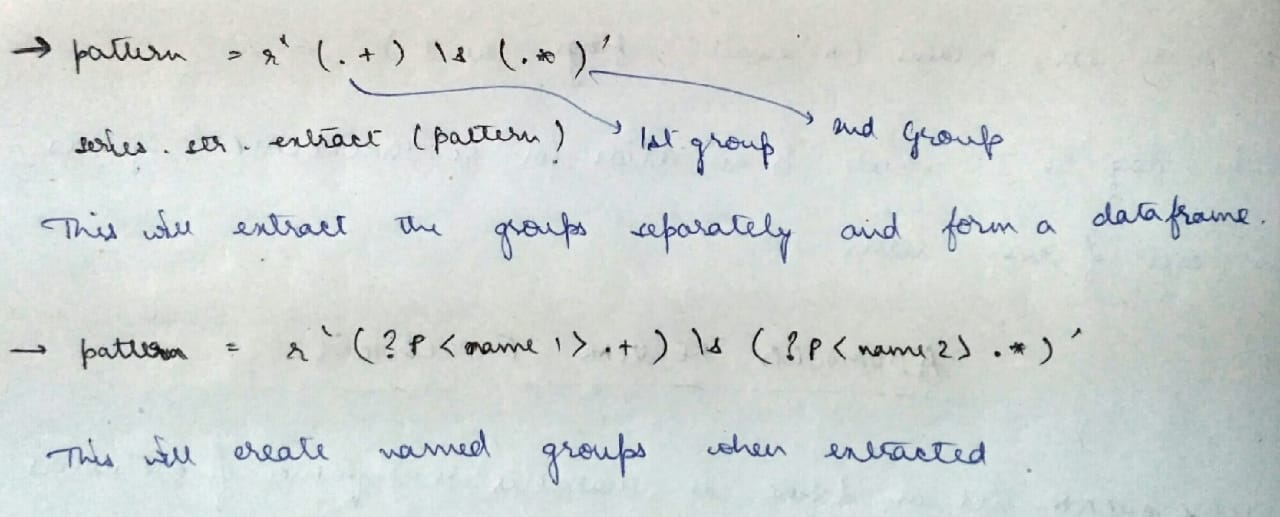 → pattern = r'(.+)\s(.*)'
series.str.extract(pattern) 1st group 2nd group
This will extract the groups separately and form a dataframe.
→ pattern = r'(?P<name1>.+)\s(?P<name2>.*)'
This will create named groups when extracted.